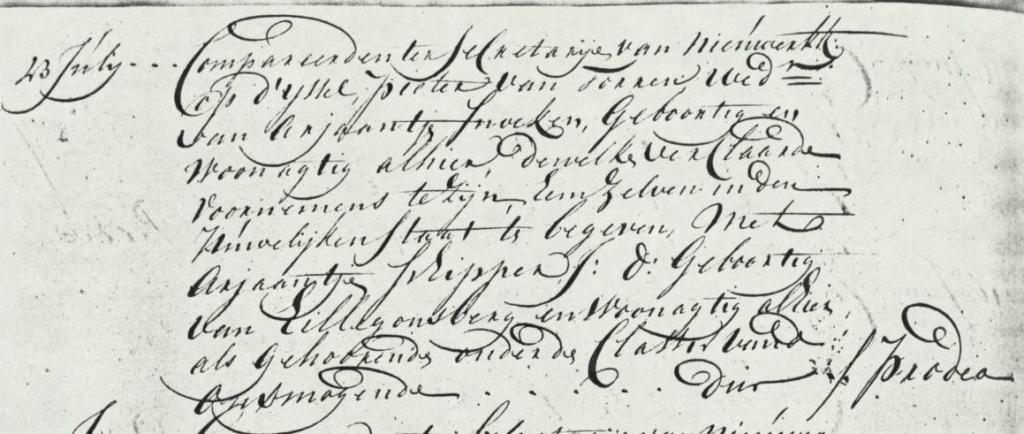 23 July . . . Comparerende ter Secretarije van Nieuwerkk:
op d'Yssel, Pieter van Tonnen Wed.nr
van Arjaantje Snoeken, Geboortig en
Woonagtig alhier, dewelke verClaarde
Voornemens te Zijn, hem Zelven in den
Huwelijken Staat te begeven, Met
Arjaantje Skipper J: d: Geboortig
van Hillegonsberg en Woonagtig alhier,
als gehoorende onder de Classis van de
Onvermogende . . . . dus . . f Prodeo
van Nieuw